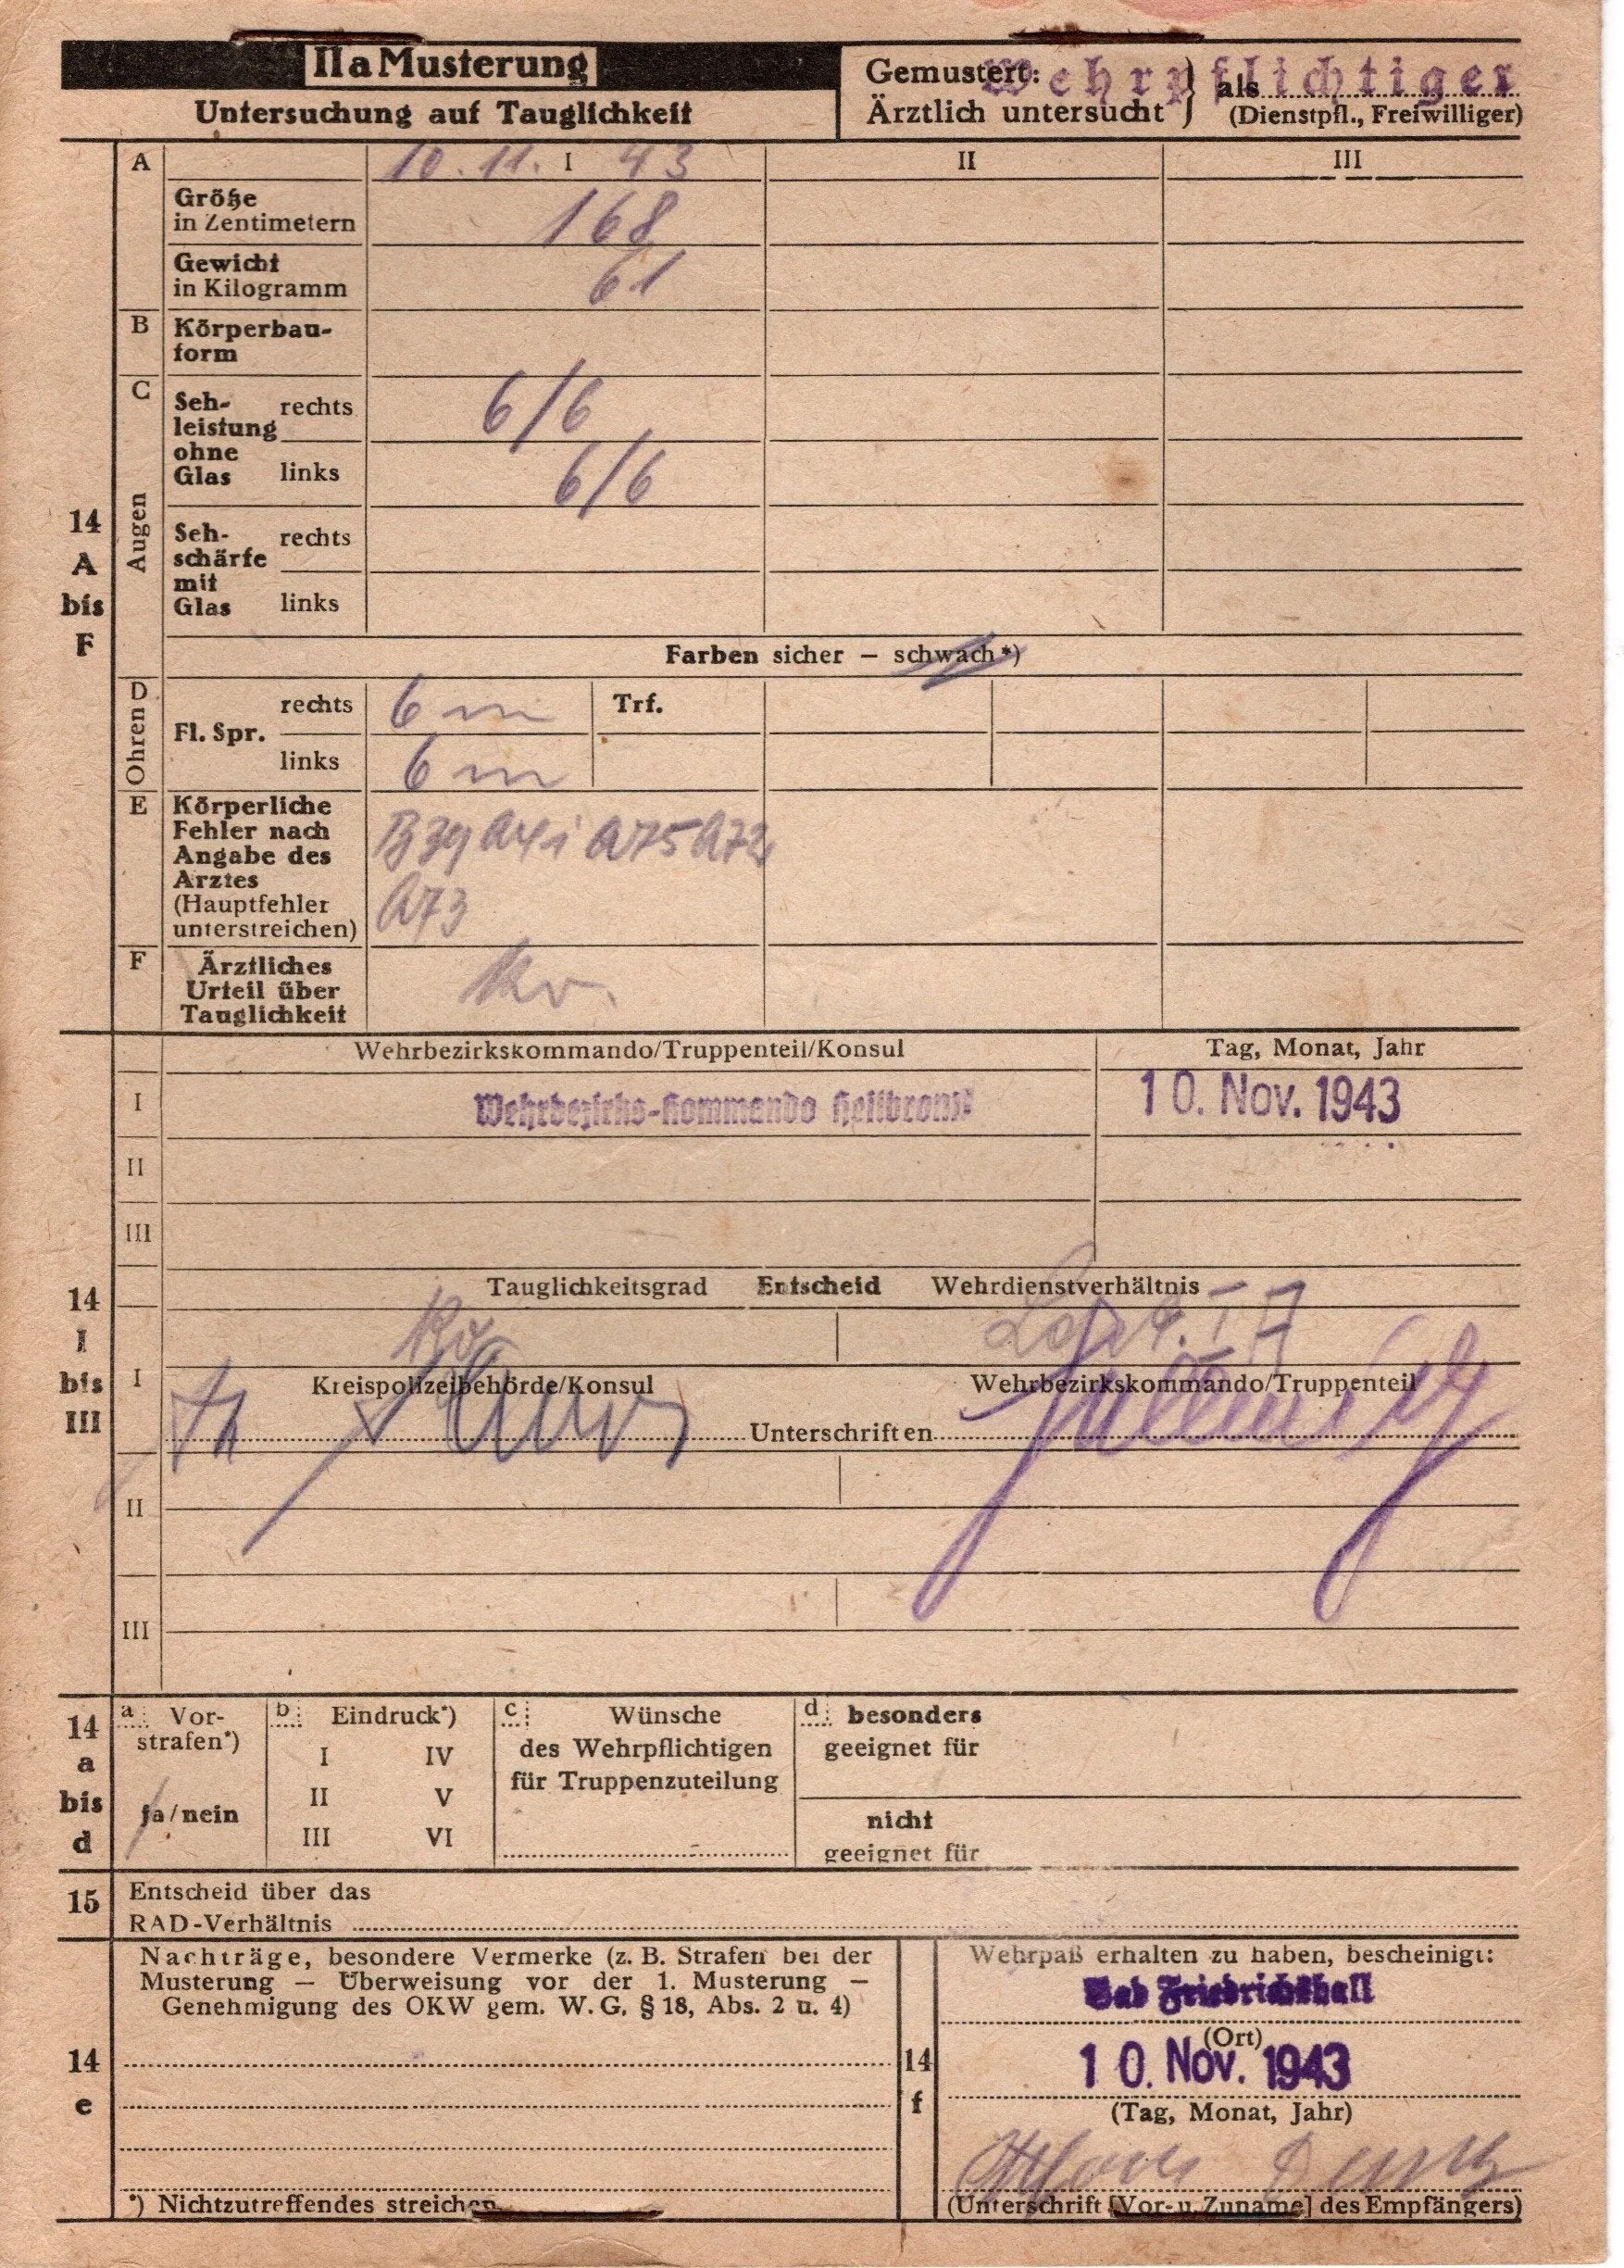 IIa Musterung
Untersuchung auf Tauglichkeit
Gemustert:
Ärztlich untersucht } als Wehrpflichtiger
(Dienstpfl., Freiwilliger)
A 10.11. I 43 II III
Größe
in Zentimetern 168
Gewicht
in Kilogramm 61
B Körperbau-
form
C Augen
Seh-
leistung
ohne
Glas
rechts 6/6
links 6/6
14
A
bis
F
Seh-
schärfe
mit
Glas
rechts
links
Farben sicher – schwach*)
D Ohren
Fl. Spr.
rechts 6 m Trf.
links 6 m
E Körperliche
Fehler nach
Angabe des
Arztes
(Hauptfehler
unterstreichen)
B39 A75 A72
A73
F Ärztliches
Urteil über
Tauglichkeit
kv.
Wehrbezirkskommando/Truppenteil/Konsul Tag, Monat, Jahr
I Wehrbezirks-Kommando Heilbronn 10. Nov. 1943
II
III
14
I
bis
III
Tauglichkeitsgrad Entscheid Wehrdienstverhältnis
kv
I Kreispolizeibehörde/Konsul Wehrbezirkskommando/Truppenteil
Unterschriften
II
III
14
a
bis
d
a Vor-
strafen*)
ja/nein
b Eindruck*)
I IV
II V
III VI
c Wünsche
des Wehrpflichtigen
für Truppenzuteilung
d besonders
geeignet für
nicht
geeignet für
15 Entscheid über das
RAD-Verhältnis
14
e
Nachträge, besondere Vermerke (z. B. Strafen bei der
Musterung – Überweisung vor der 1. Musterung –
Genehmigung des OKW gem. W. G. § 18, Abs. 2 u. 4)
*) Nichtzutreffendes streichen
14
f
Wehrpaß erhalten zu haben, bescheinigt:
Bad Friedrichshall
(Ort)
10. Nov. 1943
(Tag, Monat, Jahr)
(Unterschrift [Vor- u. Zuname] des Empfängers)